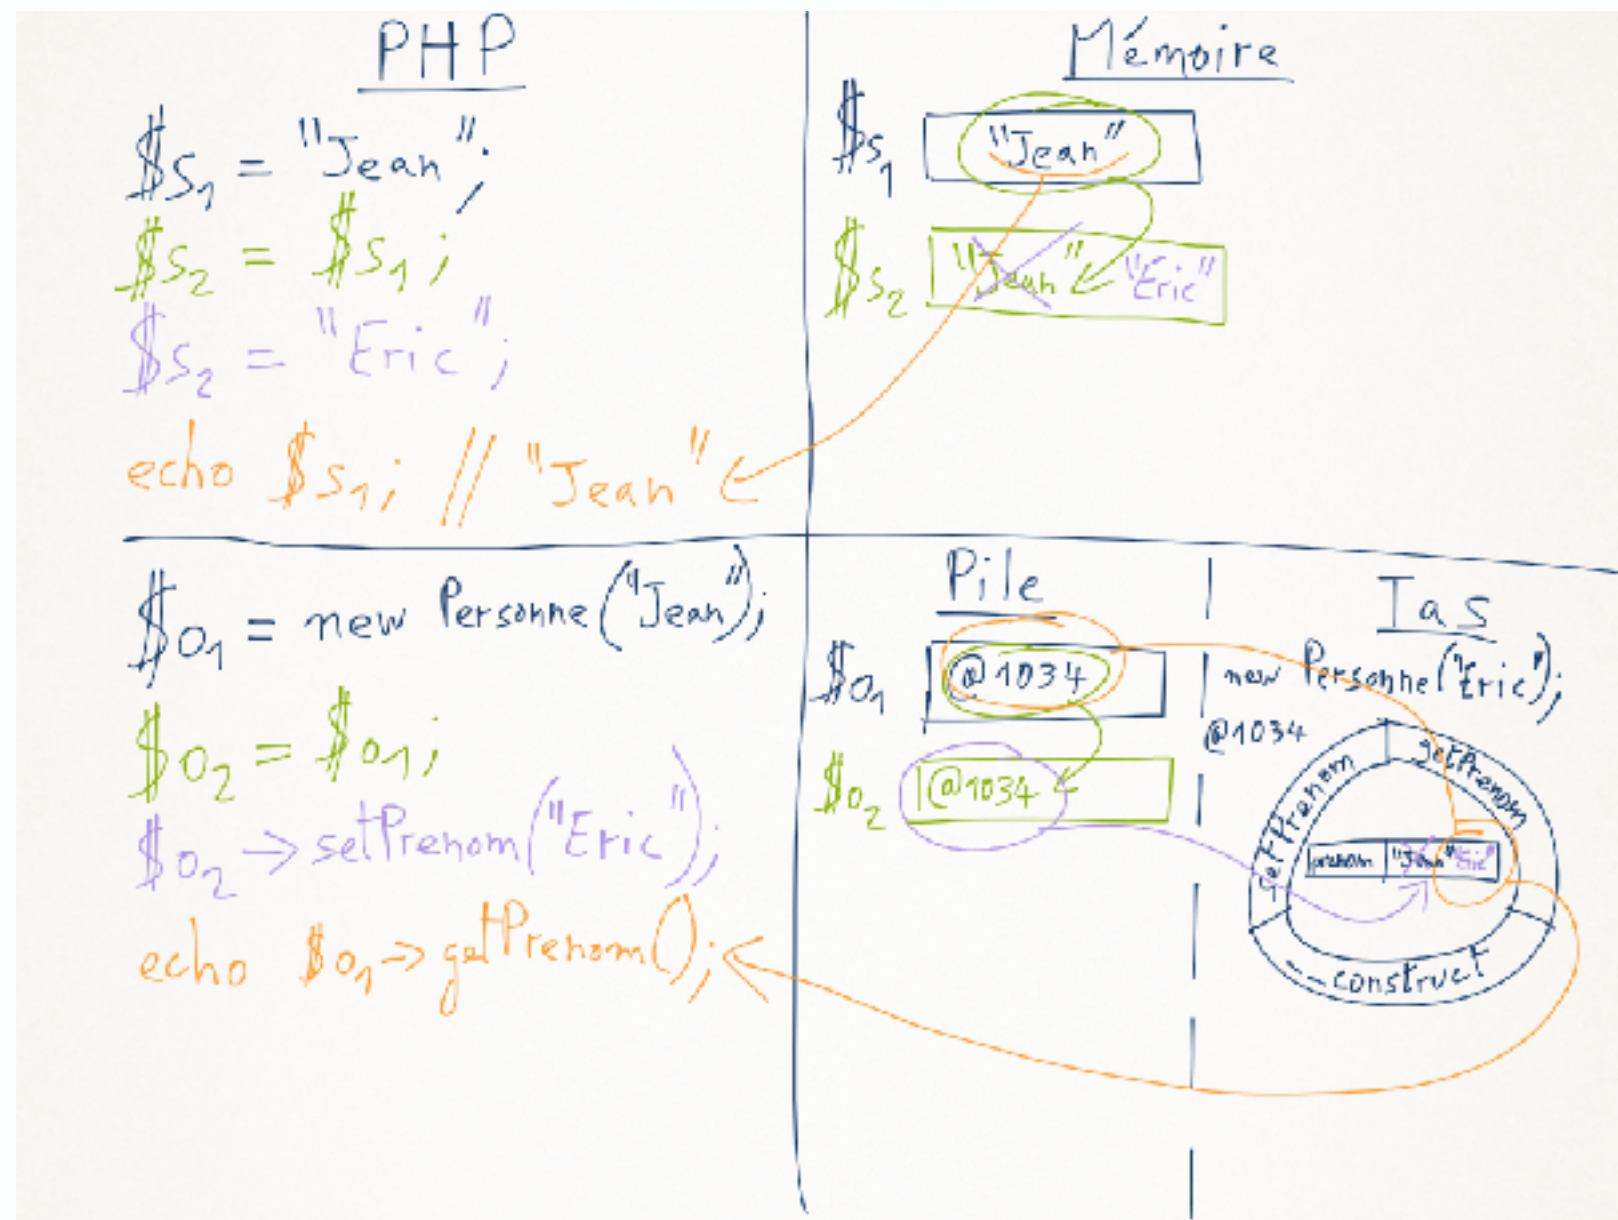 PHP
$s1 = "Jean";
$s2 = $s1;
$s2 = "Eric";
echo $s1; // "Jean"
Mémoire
$s1 "Jean"
$s2 "Jean" "Eric"
$o1 = new Personne("Jean");
$o2 = $o1;
$o2->setPrenom("Eric");
echo $o1->getPrenom();
Pile
$o1 @1034
$o2 @1034
Tas
new Personne("Eric");
@1034
setPrenom
getPrenom
prenom "Jean" "Eric"
__construct